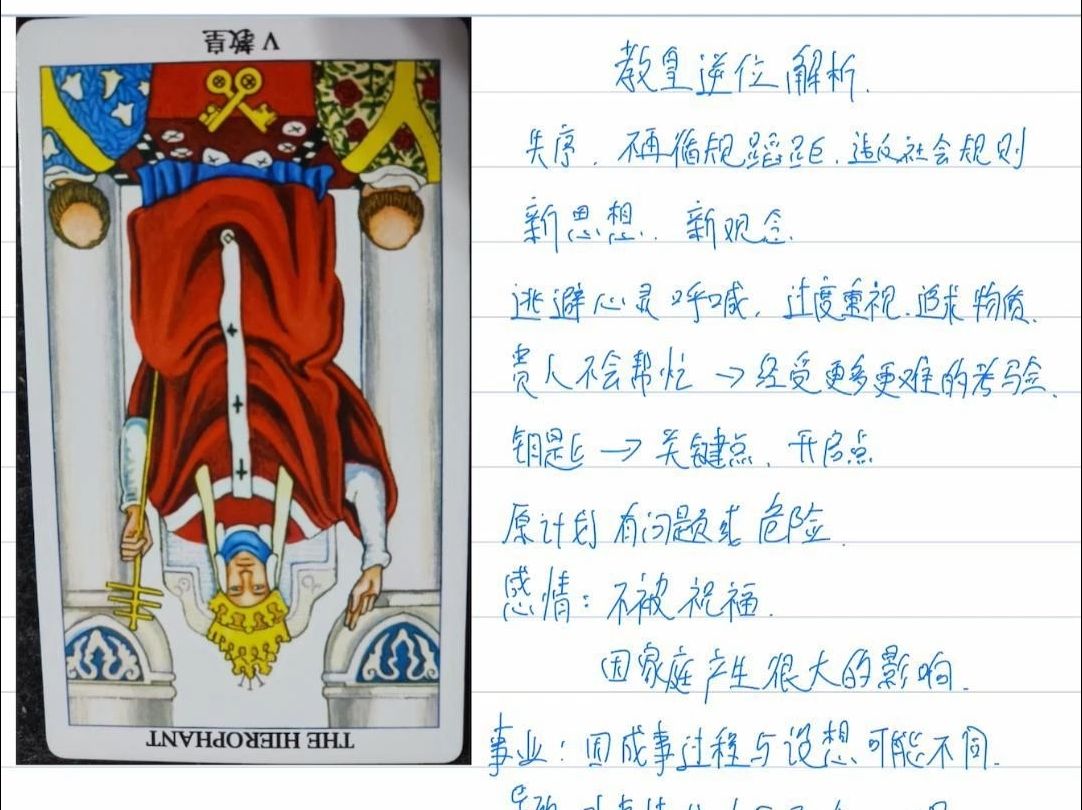 V 教皇
THE HIEROPHANT
教皇逆位解析.
失序、不再循规蹈矩、违反社会规则
新思想、新观念.
逃避心灵呼喊, 过度重视、追求物质.
贵人不会帮忙 → 经受更多更难的考验.
钥匙 → 关键点、开启点
原计划有问题或危险.
感情: 不被祝福.
因家庭产生很大的影响.
事业: 因成事过程与设想可能不同.